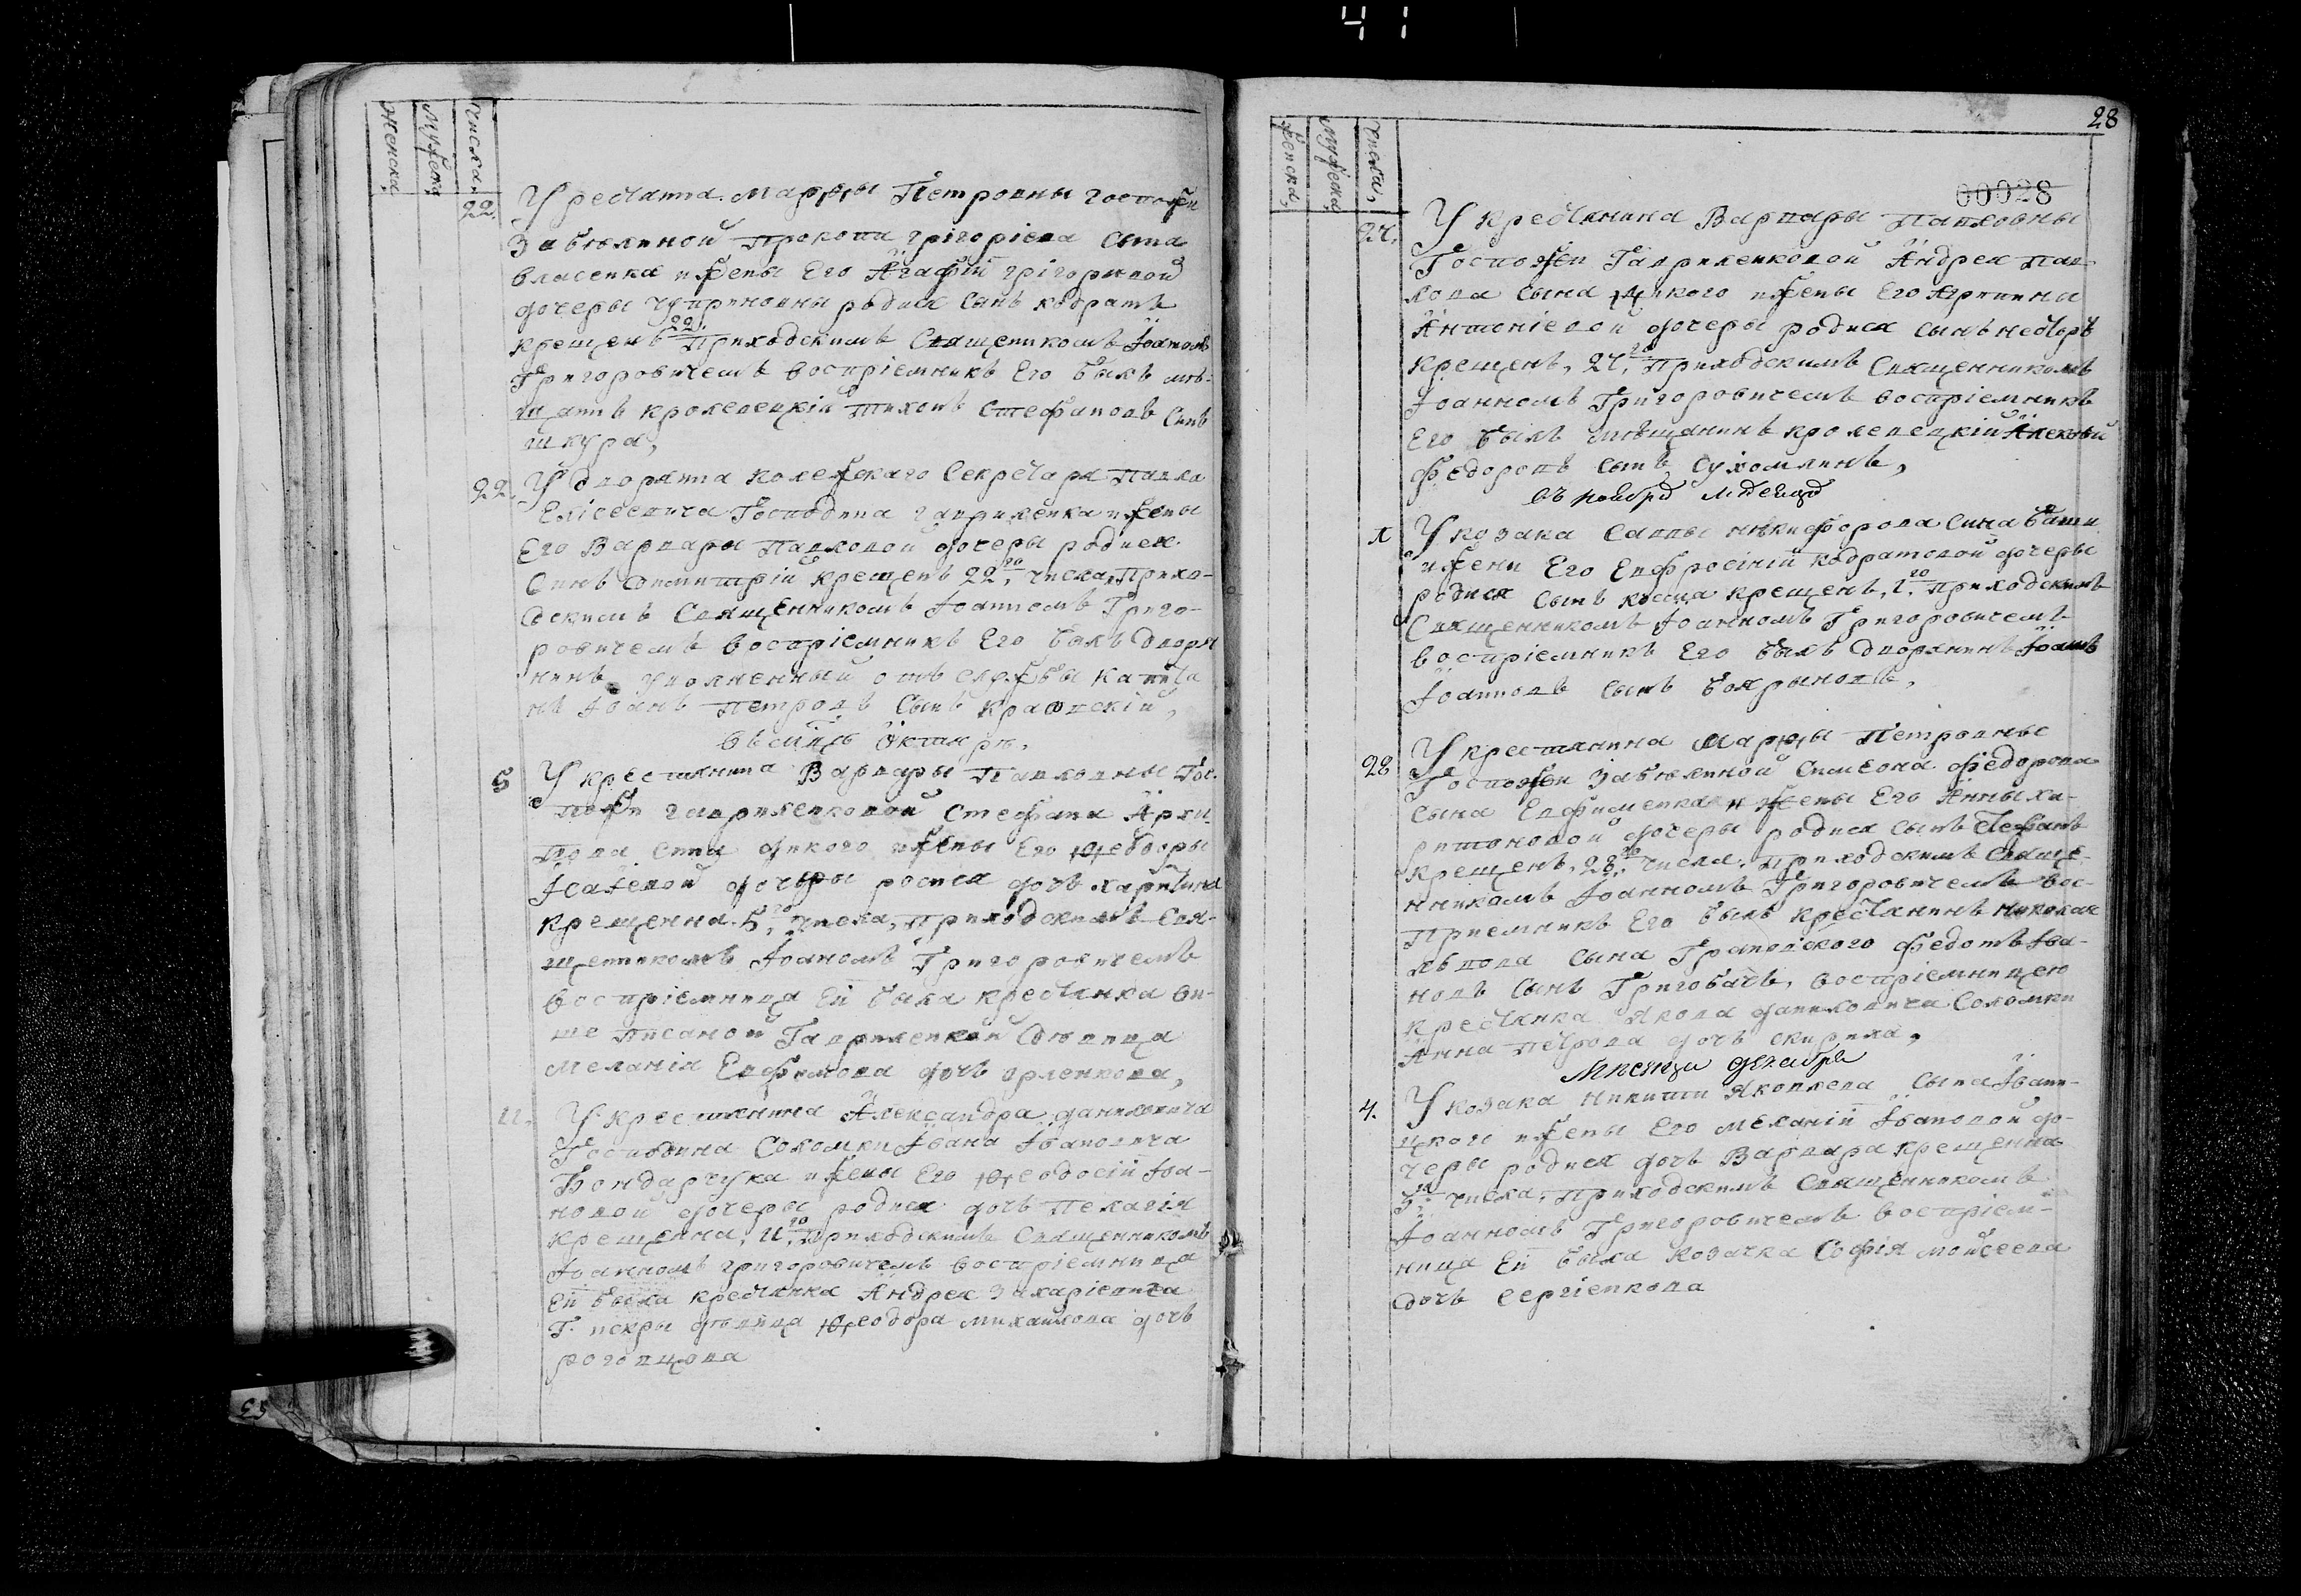 41
Женска
Мужеска
Числа
22.
У крестꙗнина Марѳы Петровны госпожи
Забѣлиной Прокопи Григоріева сына
Власенка и жены Его Агафіи Григориевой
дочеры Чуприновны родился сынъ Кодратъ
крещенъ 22, Приходскимъ Священикомъ Іоаномъ
Григоровичемъ воспріемникъ Его былъ мѣ-
щанинъ кролевецкій Тихонъ Стефановъ синъ
шкура,
22.
У дворянина колежскаго Секретаря Павла
Елісеевича Господина Гавриленка и жены
Его Варвары Павловой дочеры родился
синъ Димитрій крещенъ 22го, числа, Прихо-
дскимъ Священникомъ Іоанномъ Григо-
ровичемъ воспріемникъ Его былъ дворя
нинъ уволненный отъ службы капита
нъ Іоанъ Петровъ сынъ Краевскій,
въ мцъ Октября,
5
У крестянина Варвары Павловны Гос-
пожи Гавриленковой Стефана Архи-
пова сина дикого и жены Его Ѳеодоры
Ісаіевой дочеры родися дочъ Харитина
крещенна 5го, числа, Приходскимъ Свя-
щенникомъ Іоаномъ Григоровичемъ
воспріемница Ей была крестянка ви-
ше писаной Гавриленкой дѣвица
Меланія Евфимова дочъ орленкова,
11.
У крестянина Александра Даниловича
Господина Соломки Івана Івановича
Бондарчука и жены Его Ѳеодосіи Іва-
новой дочеры родися дочъ Пелагія
крещенна, 11го, Приходскимъ Священникомъ
Іоанномъ Григоровичемъ воспріемница
Ей была крестянка Андрея Захаріевича
Г. искры дѣвица Ѳеодора Михайлова дочъ
роговцова
28
00028
Женска,
Мужеска,
Числа,
27.
У крестянина Варвары Павловны
Госпожи Гавриленковой Андрея Пав-
лова сына дикого и жены Его Агрипины
Антоніевой дочеры родися сынъ несторъ
крещенъ, 27го, Приходскимъ Священникомъ
Іоанномъ Григоровичемъ воспріемникъ
Его былъ мѣщанинъ кролевецкій Алексѣй
Федоровъ сынъ Сухомлинъ,
въ ноябрѣ мѣсецѣ
1
У козака Саввы Никифорова сина
и жени Его Евфросініи Кодратовой дочеры
родися сынъ козма крещенъ, 1го, Приходскимъ
Священникомъ Іоанномъ Григоровичемъ
воспріемникъ Его былъ дворянинъ Іоаннъ
Іоанновъ сынъ Бояриновъ,
28
У крестянина Марѳы Петровны
Госпожи Забѣлиной Симеона Федорова
сына Евфименка и жены Его Анны ха-
ритоновой дочеры родися сынъ Стефанъ
крещенъ, 28го, числа, Приходскимъ Свяще-
нникомъ Іоанномъ Григоровичемъ вос-
приемникъ Его былъ крестянинъ Николая
львова сына Грановского Федотъ Іва-
новъ сынъ Григобачъ, воспріемницею
крестянка Якова Даниловича Соломки
Анна Петрова дочъ скириха,
Мисяца декабря
4.
У козака Никити Яковлева сына Іванн-
цкого и жены Его Меланіи Івановой до-
черы родися дочъ Варвара крещенна
5го числа, Приходскимъ Священникомъ
Іоанномъ Григоровичемъ воспріем-
ница Ей была козачка Софія Мойсеева
дочъ Сергіенкова